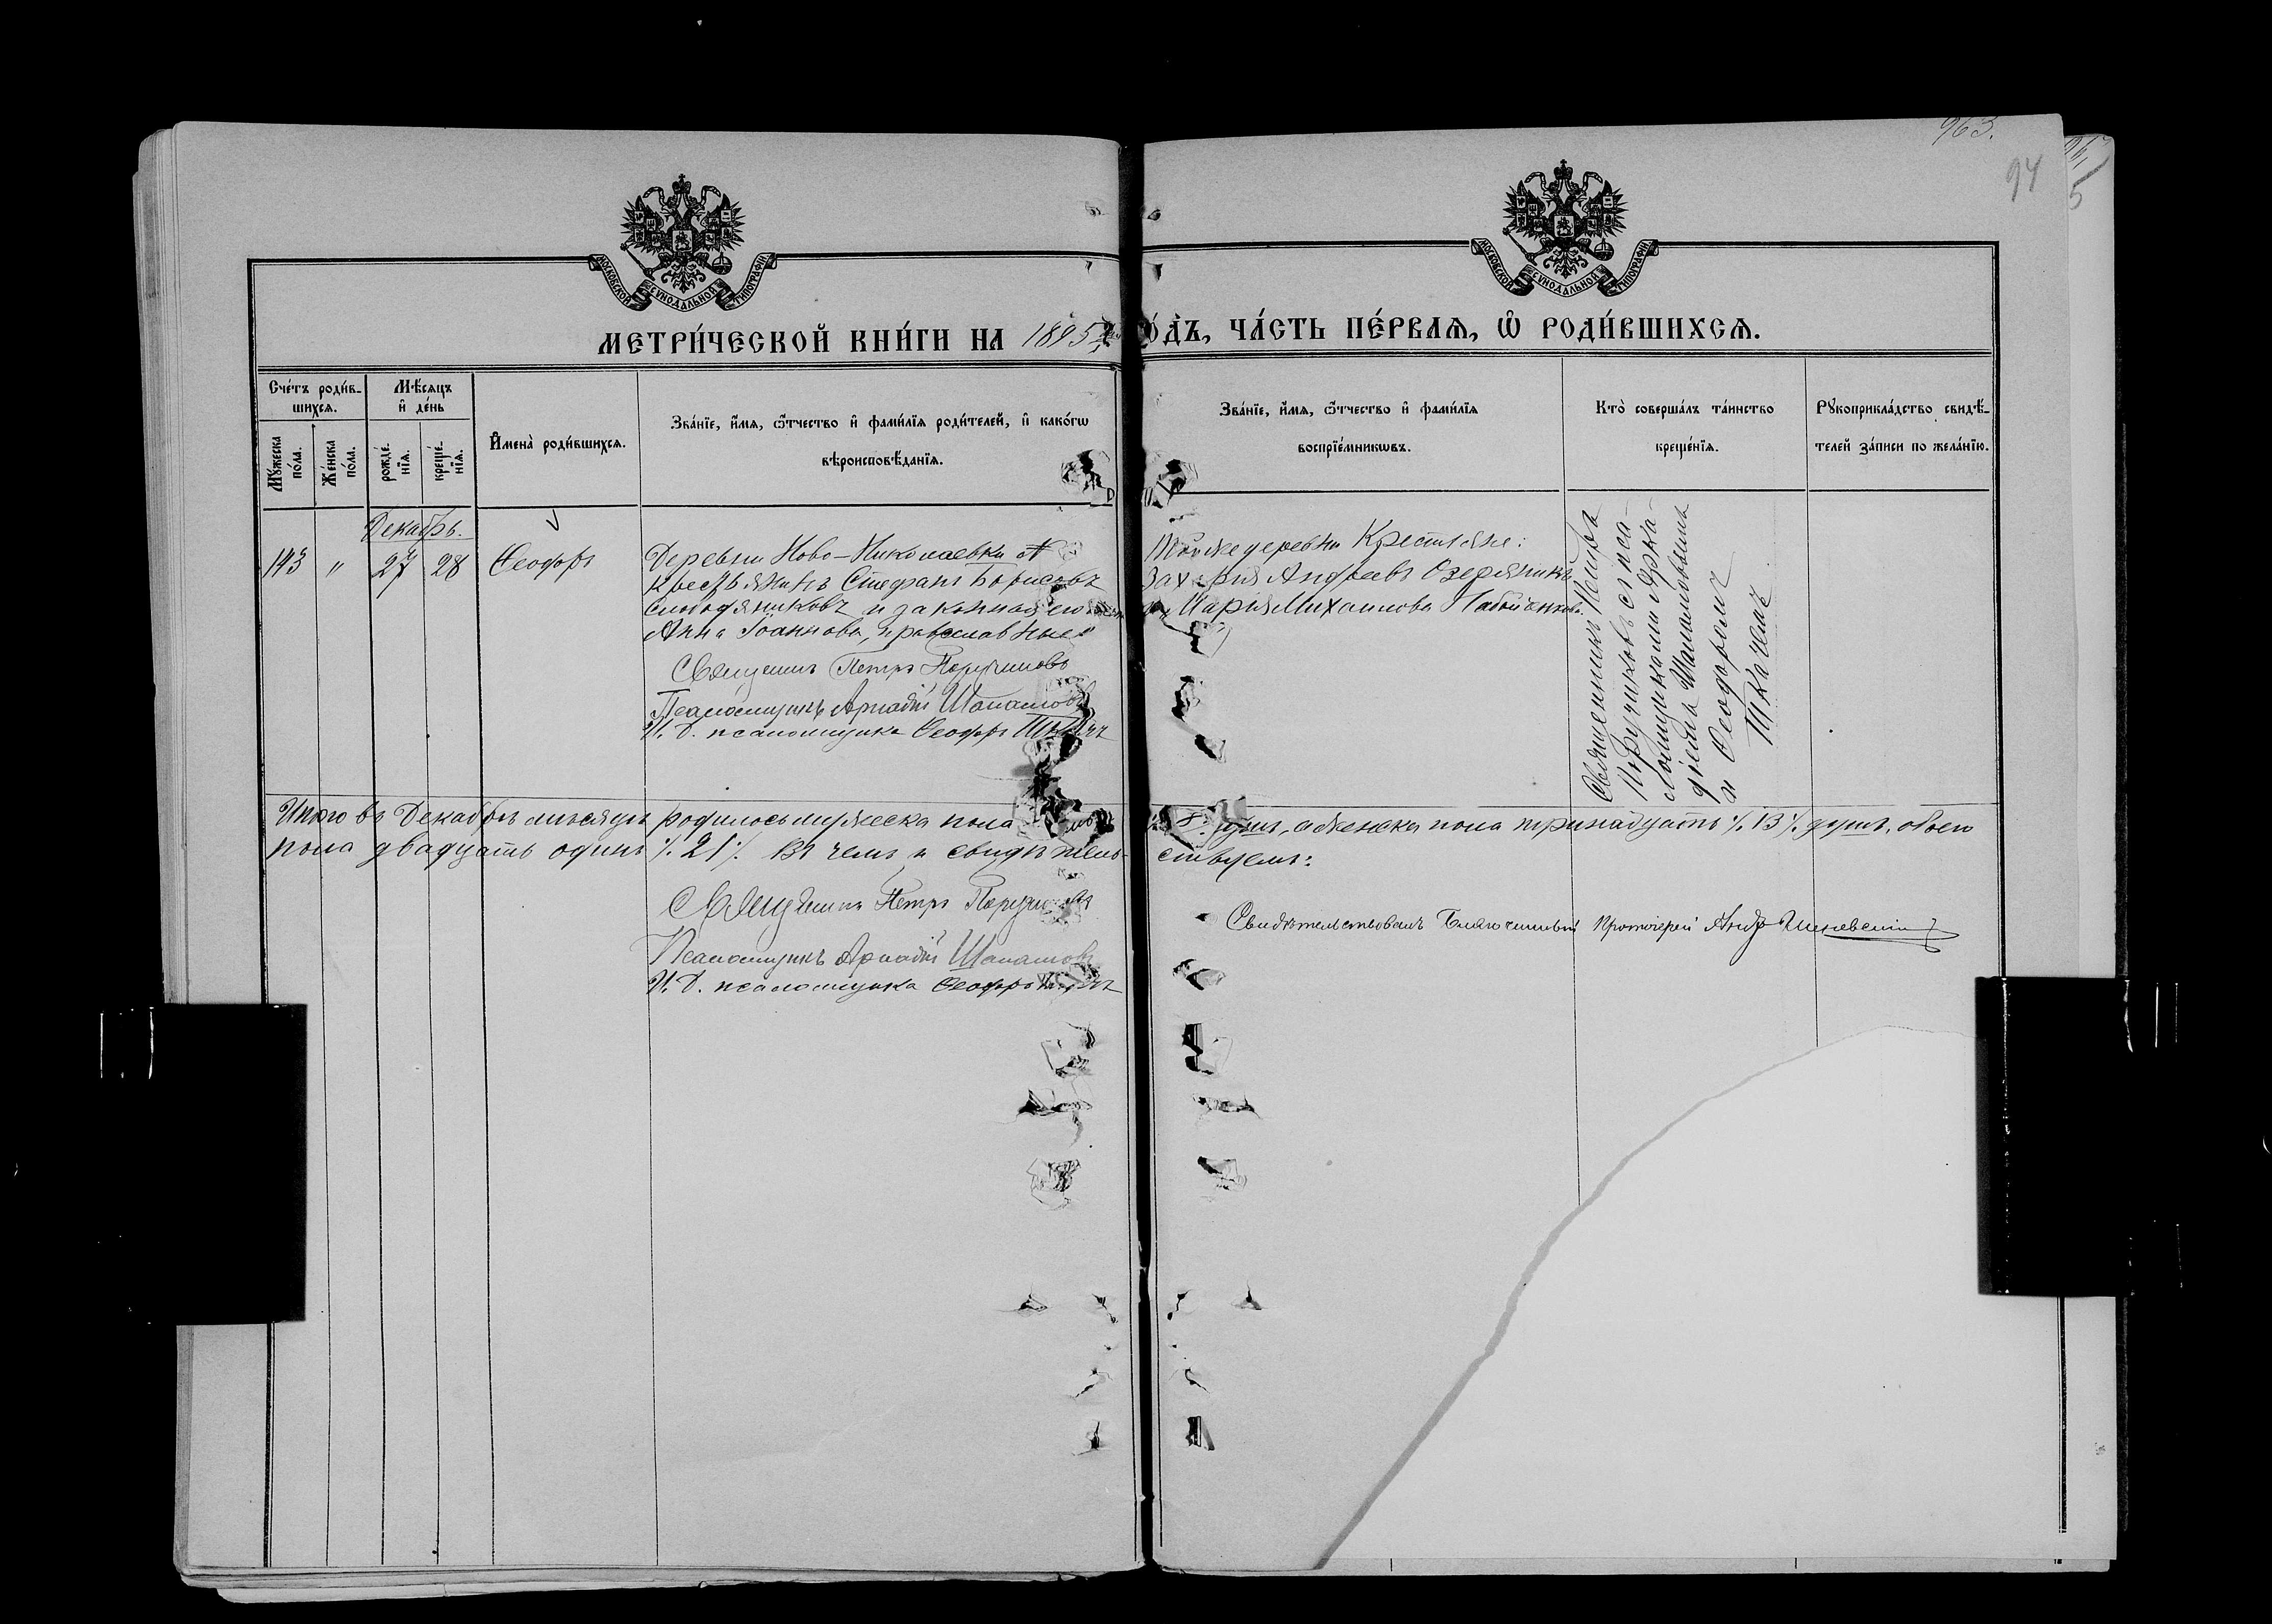 963.
94
МОСКОВСКОЙ СУНОДАЛЬНОЙ ТИПОГРАФІИ
МОСКОВСКОЙ СУНОДАЛЬНОЙ ТИПОГРАФІИ
МЕТРИ́ЧЕСКОЙ КНИ́ГИ НА 1895
О́ДЪ, ЧА́СТЬ ПЕ́РВАѦ, Ѡ҆ РОДИ́ВШИХСѦ.
Сче́тъ роди́в-
шихсѧ.
Мꙋ́жеска
по́ла.
Же́нска
по́ла.
Мѣ́сѧцъ
и҆ де́нь
рожде́-
нїѧ.
креще́-
нїѧ.
И҆мена̀ роди́вшихсѧ.
Зва́нїе, и҆́мѧ, ѻ҆́тчество и҆ фами́лїѧ роди́телей, и҆ како́гѡ
вѣроисповѣ́данїѧ.
Зва́нїе, и҆́мѧ, ѻ҆́тчество и҆ фами́лїѧ
воспрїе́мникѡвъ.
Кто̀ соверша́лъ та́инство
креще́нїѧ.
Рꙋкоприкла́дство свидѣ́-
телей за́писи по жела́нїю.
Декабрь.
143 " 27 28 Ѳеодоръ
Деревни Ново-Николаевки
крестьянинъ Стефанъ Борисовъ
Слободяниковъ и законная его
Анна Іоаннова, православные
Священникъ Петръ Поручиковъ
Псаломщикъ Аркадій Шапаловъ
И. Д. псаломщика Ѳеодоръ Ткачъ
Той же деревни Крестьяне:
Захарія Андреевъ Озеряникъ
Марія Михаилова
Священникъ Петръ
Поручиковъ съ пса-
ломщиками Арка-
діемъ Шапаловымъ
и Ѳеодоромъ
Ткачемъ
Итого въ Декабрѣ мѣсяцѣ родилось мужеска пола
8. душъ, а женска пола тринадцать ./. 13 ./. душъ, обоего
пола двадцать одинъ ./. 21 ./. Въ чемъ и свидѣтель-
ствуемъ:
Священникъ Петръ Поручиковъ
Псаломщикъ Аркадій Шапаловъ
И. Д. псаломщика Ѳеодоръ Ткачъ
Свидѣтельствовалъ Благочинный Протоіерей